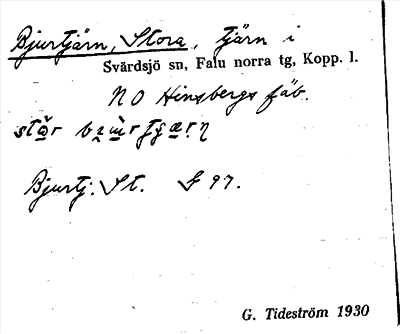 Bjurtjärn, Stora, tjärn i
Svärdsjö sn, Falu norra tg, Kopp. l.
NO Hinsbergs fäb.
Bjurtj. St. G 97.
G. Tideström 1930